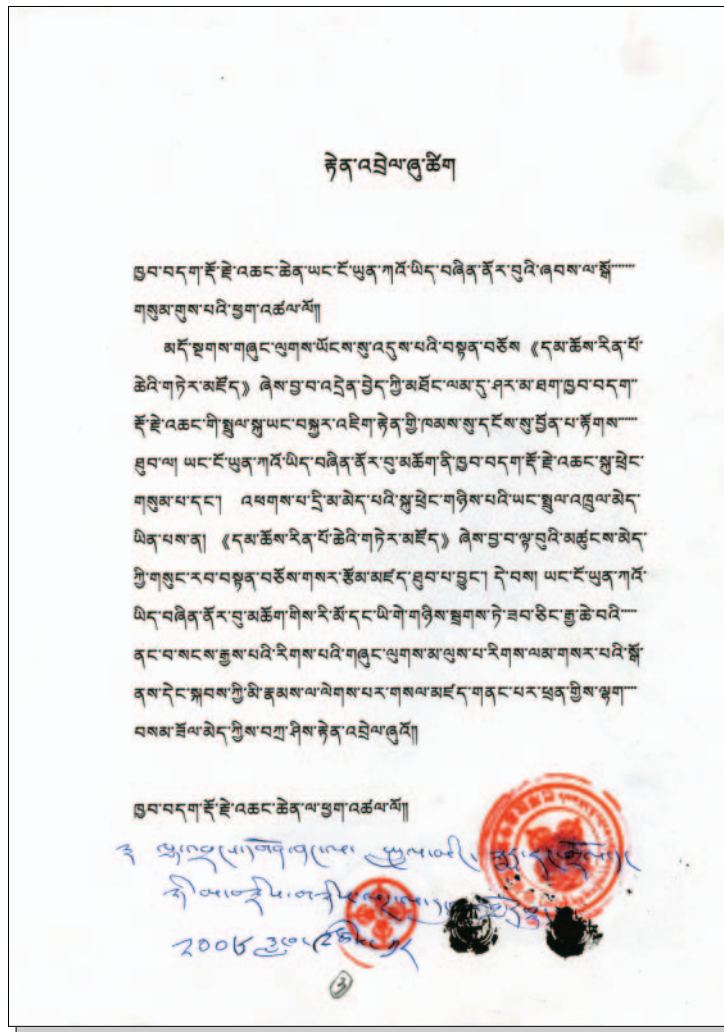 རྟེན་འབྲེལ་ཞུ་ཚིག
ཁྱབ་བདག་རྡོ་རྗེ་འཆང་ཆེན་ཡང་ངོ་ཡུན་ཀའོ་ཡིད་བཞིན་ནོར་བུའི་ཞབས་ལ་སྒོ་་་་་་
གསུམ་གུས་པའི་ཕྱག་འཚལ་ལོ།།
མདོ་སྔགས་གཞུང་ལུགས་ཡོངས་སུ་འདུས་པའི་བསྟན་བཅོས 《དམ་ཆོས་རིན་པོ་
ཆེའི་གཏེར་མཛོད》 ཞེས་བྱ་བ་འདྲེན་བྱེད་ཀྱི་མཐོང་ལམ་དུ་ཤར་མ་ཐག་ཁྱབ་བདག་་
རྡོ་རྗེ་འཆང་གི་སྤྲུལ་སྐུ་ཡང་བསྐྱར་འཇིག་རྟེན་གྱི་ཁམས་སུ་དངོས་སུ་བྱོན་པ་རྟོགས་་་་་་
ཐུབ་ལ། ཡང་ངོ་ཡུན་ཀའོ་ཡིད་བཞིན་ནོར་བུ་མཆོག་ནི་ཁྱབ་བདག་རྡོ་རྗེ་འཆང་སྐུ་ཕྲེང་
གསུམ་པ་དང་། འཕགས་པ་དྲི་མ་མེད་པའི་སྐུ་ཕྲེང་གཉིས་པའི་ཡང་སྤྲུལ་འཁྲུལ་མེད་
ཡིན་པས་ན། 《དམ་ཆོས་རིན་པོ་ཆེའི་གཏེར་མཛོད》 ཞེས་བྱ་བ་ལྟ་བུའི་མཚུངས་མེད་
ཀྱི་གསུང་རབ་བསྟན་བཅོས་གསར་རྩོམ་མཛད་ཐུབ་པ་བྱུང་། དེ་བས། ཡང་ངོ་ཡུན་ཀའོ་
ཡིད་བཞིན་ནོར་བུ་མཆོག་གིས་རི་མོ་དང་ཡི་གེ་གཉིས་སྦྲགས་ཏེ་ཟབ་ཅིང་རྒྱ་ཆེ་བའི་་་་་
ནང་བ་སངས་རྒྱས་པའི་རིགས་པའི་གཞུང་ལུགས་མ་ལུས་པ་རིགས་ལམ་གསར་པའི་སྒོ་
ནས་དེང་སྐབས་ཀྱི་མི་རྣམས་ལ་ལེགས་པར་གསལ་མཛད་གནང་པར་ཕྲན་གྱིས་ལྷག་་་་་
བསམ་ཟོལ་མེད་ཀྱིས་བཀྲ་ཤིས་རྟེན་འབྲེལ་ཞུའོ།།
ཁྱབ་བདག་རྡོ་རྗེ་འཆང་ཆེན་ལ་ཕྱག་འཚལ་ལོ།།
༣